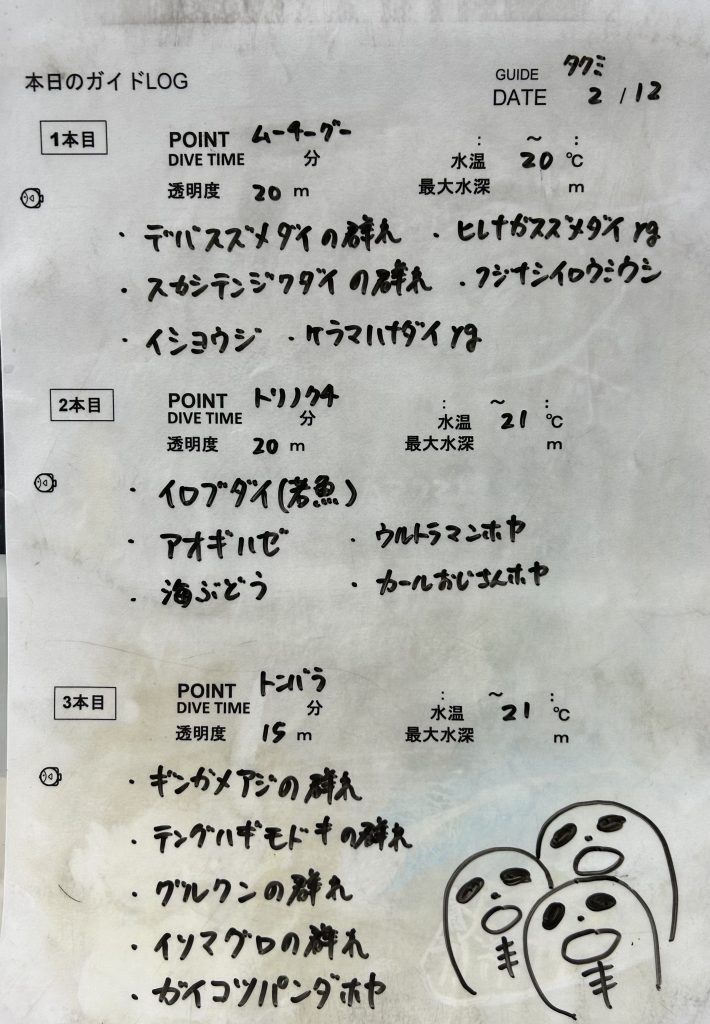 本日のガイドLOG
GUIDE タクミ
DATE 2 / 12
1本目
POINT ムーチーグー : ～ :
DIVE TIME 分 水温 20 ℃
透明度 20 m 最大水深 m
・デバスズメダイの群れ ・ヒレナガスズメダイyg
・スカシテンジクダイの群れ ・フジナシイロウミウシ
・イショウジ ・ケラマハナダイyg
2本目
POINT トリノクチ : ～ :
DIVE TIME 分 水温 21 ℃
透明度 20 m 最大水深 m
・イロブダイ(若魚)
・アオギハゼ ・ウルトラマンホヤ
・海ぶどう ・カールおじさんホヤ
3本目
POINT トンバラ : ～ :
DIVE TIME 分 水温 21 ℃
透明度 15 m 最大水深 m
・ギンガメアジの群れ
・テングハギモドキの群れ
・グルクンの群れ
・イソマグロの群れ
・ガイコツパンダホヤ